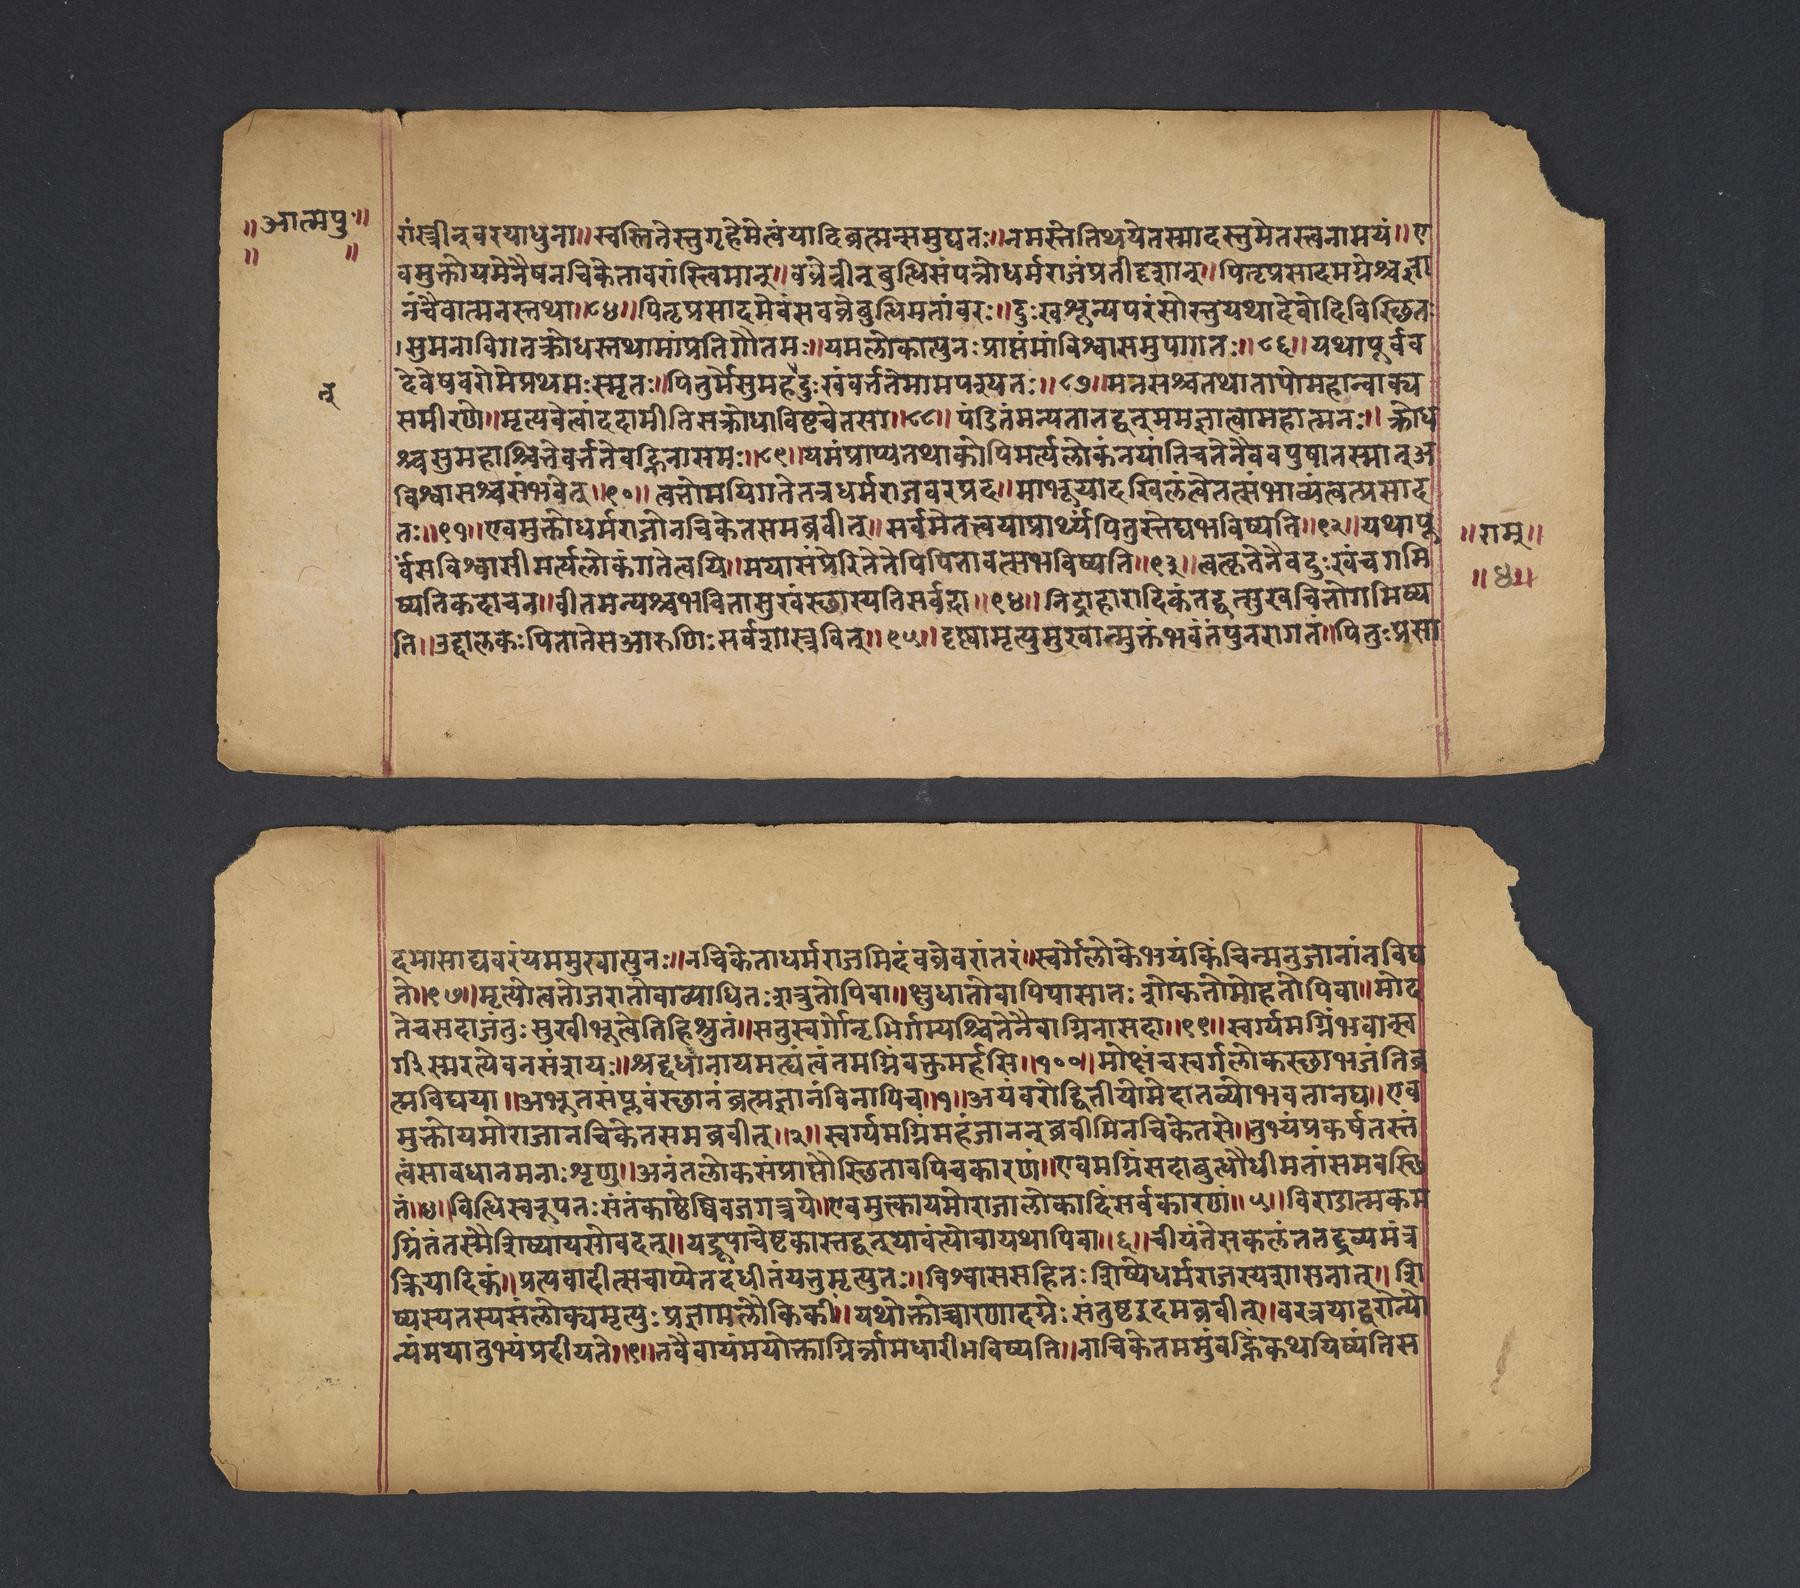 ॥आत्मपु॥
॥ ॥
रांस्त्रीन्वरयाधुना॥स्वस्तितेस्तुगृहेमेत्वंयादिब्रह्मन्समुद्यतः॥नमस्तेतिथयेतस्मादस्तुमेतस्त्वनामयं॥ए
वमुक्तोयमेनैषनचिकेतावरांस्त्विमान्॥वव्रेत्रीन्बुद्धिसंपन्नोधर्मराजंप्रतीदृशान्॥पितृप्रसादमग्नेश्चज्ञा
नंचैवात्मनस्तथा॥८४॥पितृप्रसादमेवंसवव्रेबुद्धिमतांवरः॥दुःखशून्यपरंसोस्तुयथादेवोदिविस्छितः
।सुमनाविगतक्रोधस्तथामांप्रतिगौतमः॥यमलोकात्पुनःप्राप्तंमांविश्वासमुपागतः॥८६॥यथापूर्वव
देवेषवरोमेप्रथमःस्मृतः॥पितुर्मेसुमहद्दुःखंवर्त्ततेमामपश्यतः॥८७॥मनसश्चतथातापोमहान्वाक्य
त्
समीरणे॥मृत्यवेत्वांददामीतिसक्रोधाविष्टचेतसा॥८८॥पंडितंमन्यतातद्वत्ममज्ञात्वामहात्मनः॥क्रोध
श्चसुमहाश्चित्तेवर्त्ततेवह्निनासमः॥८९॥यमंप्राप्यतथाकोपिमर्त्यलोकंनयातिचतेनैववपुषातस्मात्अ
विश्वासश्चसंभवेत्॥९०॥त्वत्तोमयिगतेतत्रधर्मराजवरप्रद॥माभूयादखिलंत्वेतत्संभाव्यंत्वत्प्रसाद
तः॥९१॥एवमुक्तोधर्मराजोनचिकेतसमब्रवीत्॥सर्वमेतत्त्वयाप्रार्थ्यंपितुस्तेद्यभविष्यति॥९२॥यथापू
॥राम्॥
र्वसविश्वासीमर्त्यलोकंगतेत्वयि॥मयासंप्रेरितेतेपिपितावत्सभविष्यति॥९३॥त्वत्कृतेनैवदुःखंचगमि
॥४॥
ष्यतिकदाचन॥वीतमन्यश्चभवितासुखंस्छास्यतिसर्वदा॥९४॥निद्राहारादिकंतद्वत्सुखचित्तोगमिष्य
ति॥उद्दालकःपितातेसआरुणिःसर्वशास्त्रवित्॥९५॥दृष्ट्वामृत्युमुखान्मुक्तंभवंतंपुनरागतं॥पितुःप्रसा
दमासाद्यवरंयममुखात्पुनः॥नचिकेताधर्मराजमिदंवव्रेवरांतरं॥स्वर्गेलोकेभयंकिंचिन्मनुजानांनविद्य
ते॥९७॥मृत्योत्वत्तोजरातोवाव्याधितःशत्रुतोपिवा॥क्षुधातोवापिपासातःशोकतोमोहतोपिवा॥मोद
तेचसदाजंतुःसुखीभूत्वेतिहिश्रुतं॥सतुस्वर्गोनृभिर्गम्यश्चितेनैवाग्निनासदा॥९९॥स्वर्ग्यमग्निंभवान्स्व
र्गीस्मरत्येवनसंशयः॥श्रद्दधानायमत्ह्यंत्वंतमग्निंवक्तुमर्हसि॥१००॥मोक्षंचस्वर्गलोकेस्छाभजंतिब्र
ह्मविद्यया॥अभूतसंप्लवंस्छानंब्रह्मज्ञानंविनापिच॥१॥अयंवरोद्वितीयोमेदातव्योभवतानघ॥एव
मुक्तोयमोराजानचिकेतसमब्रवीत्॥२॥स्वर्ग्यमग्निंमहंजानन्ब्रवीमिनचिकेतसे॥तुभ्यंप्रकर्षतस्तं
त्वंसावधानमनाःशृणु॥अनंतलोकसंप्राप्तौस्छितावपिचकारणं॥एवमग्निंसदाबुद्धौधीमतांसमवस्छि
तं॥४॥विद्धिस्वरूपतःसंतंकाष्ठेष्विवजगत्त्रये॥एवमुक्त्कायमोराजालोकादिंसर्वकारणं॥५॥विराडात्मकम
ग्निंतंतस्मैशिष्यायसोवदत्॥यद्रूपाचेष्टकास्तद्वत्यावंत्योवायथापिवा॥६॥चीयंतेसकलंतततद्द्रव्यमंत्र
क्रियादिकं॥प्रत्यवादीत्सचाप्येतदधीतंयत्तुमृत्युतः॥विश्वाससहितःशिष्येधर्मराजस्यशासनात्॥शि
ष्यस्यतस्यसंलोक्यमृत्युःप्रज्ञामलौकिकीं॥यथोक्तोच्चारणादग्नेःसंतुष्टइदमब्रवीत्॥वरत्रयाद्वरोन्यो
न्यंमयातुभ्यंप्रदीयते॥९॥तवैवायंमयोक्ताग्निर्न्नामधारीभविष्यति॥नाचिकेतममुंवह्निंकथयिष्यंतिस